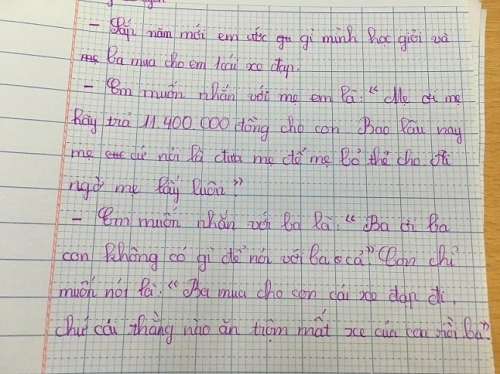 - Sắp năm mới em ước gu gì mình học giỏi và
mẹ ba mua cho em 1 cái xe đạp.
- Em muốn nhắn với mẹ em là: "Mẹ ơi mẹ
hãy trả 11.400.000 đồng cho con. Bao lâu nay
mẹ cứ nói là đưa mẹ để mẹ bỏ thẻ cho ai
ngờ mẹ lấy luôn."
- Em muốn nhắn với ba là: "Ba ơi ba
con không có gì để nói với ba cả". Con chỉ
muốn nói là: "Ba mua cho con cái xe đạp đi,
chứ cái thằng nào ăn trộm mất xe của con rồi ba".